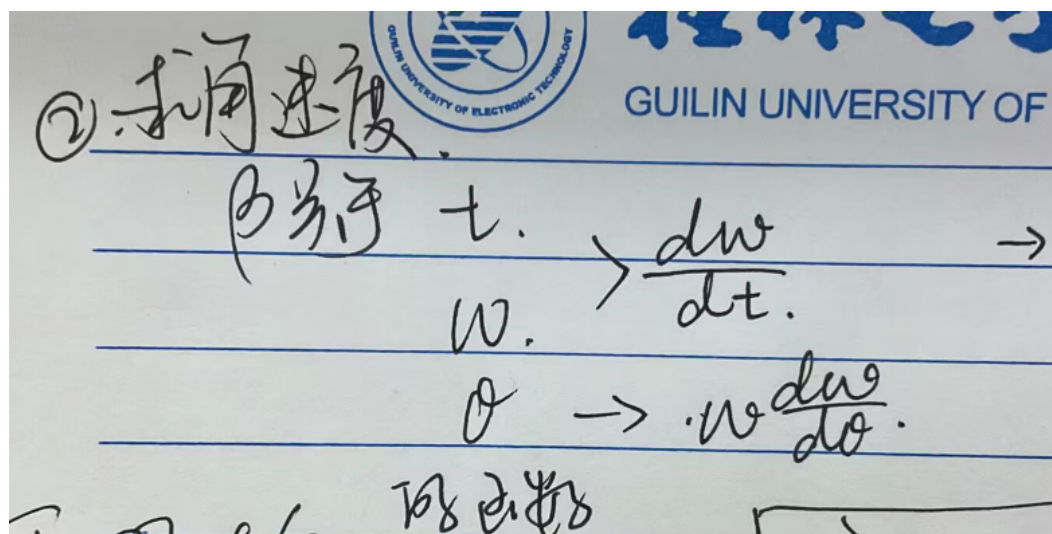 GUILIN UNIVERSITY OF ELECTRONIC TECHNOLOGY
GUILIN UNIVERSITY OF
②.求角速度.
β关于 t.
> dω/dt. →
ω.
θ → ·ω dω/dθ.
的函数